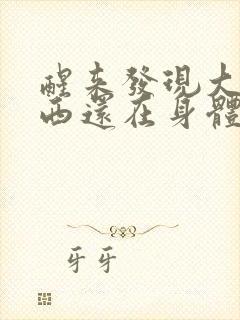 醒来發現大
西還在身體
牙牙